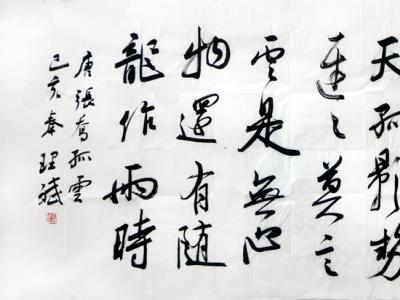 天孤影勢
遲々莫言
長是無心
物還有随
龍作雨時
唐張喬孤雲
己亥春理斌